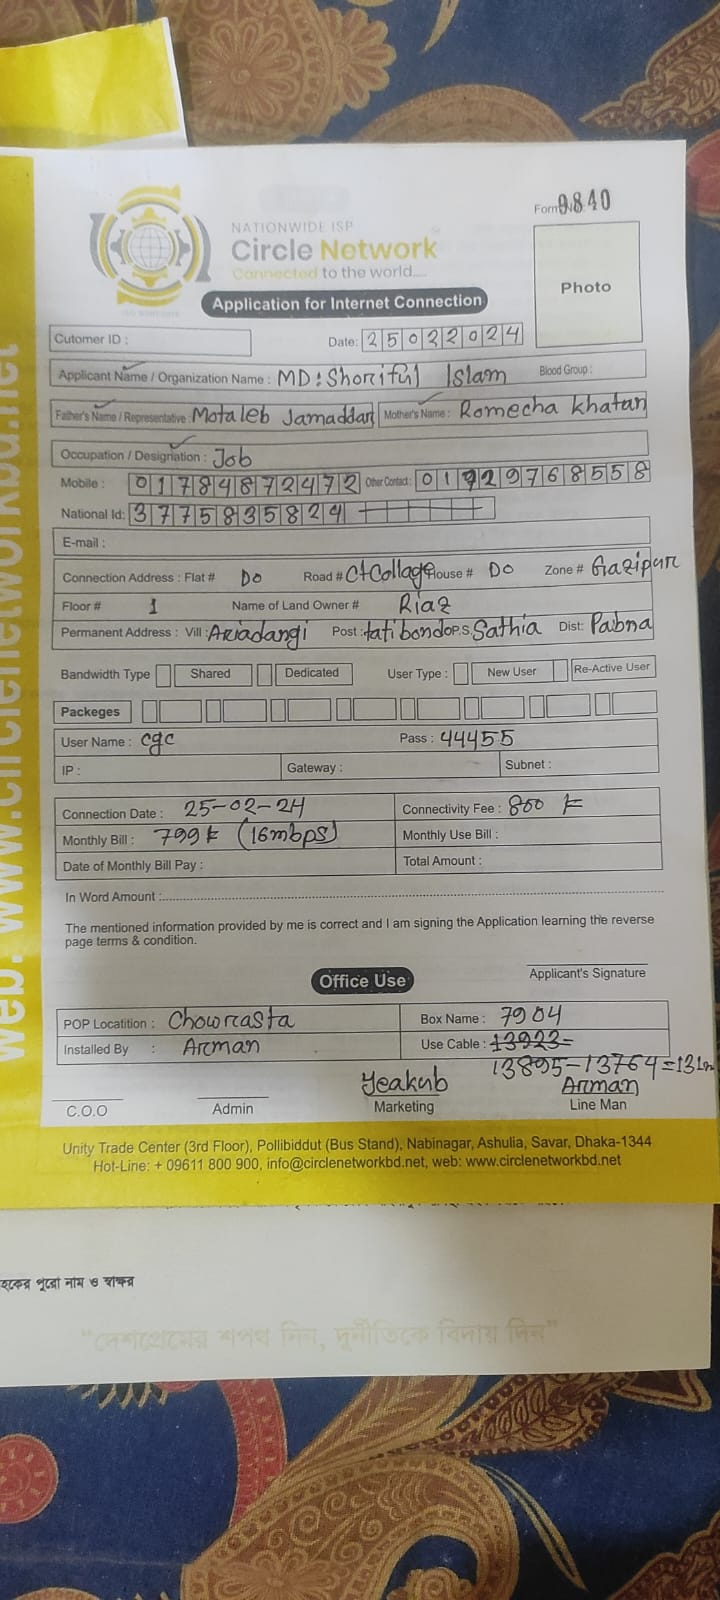 Form No: 9840
NATIONWIDE ISP
Circle Network
Connected to the world....
Application for Internet Connection
Photo
Cutomer ID :
Date: 25022024
Applicant Name / Organization Name : MD: Shoriful Islam Blood Group :
Father's Name / Representative : Motaleb Jamaddar Mother's Name : Romecha Khatan
Occupation / Designation : Job
Mobile : 01784872472 Other Contact : 01929768558
National Id: 3775835824
E-mail :
Connection Address : Flat # Do Road # Ct Collage House # DO Zone # Gazipur
Floor # 1 Name of Land Owner # Riaz
Permanent Address : Vill : Ariadangi Post : tatibondo P.S. Sathia Dist: Pabna
Bandwidth Type Shared Dedicated User Type : New User Re-Active User
Packeges
User Name : cgc Pass : 44455
IP : Gateway : Subnet :
Connection Date : 25-02-24 Connectivity Fee : 800 ৳
Monthly Bill : 799 ৳ (16mbps) Monthly Use Bill :
Date of Monthly Bill Pay : Total Amount :
In Word Amount :
The mentioned information provided by me is correct and I am signing the Application learning the reverse
page terms & condition.
Applicant's Signature
Office Use
POP Locatition : Chowrasta Box Name : 7904
Installed By : Arman Use Cable : 13923=
13895-13764=131m
Yeakub Arman
C.O.O Admin Marketing Line Man
Unity Trade Center (3rd Floor), Pollibiddut (Bus Stand), Nabinagar, Ashulia, Savar, Dhaka-1344
Hot-Line: + 09611 800 900, info@circlenetworkbd.net, web: www.circlenetworkbd.net
web: www.circlenetworkbd.net
হকের পুরো নাম ও স্বাক্ষর
"দেশপ্রেমের শপথ নিন, দুর্নীতিকে বিদায় দিন"